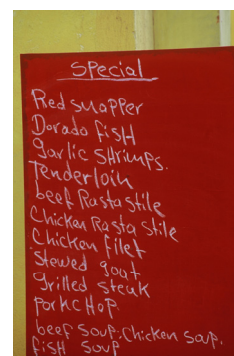 Special
Red snapper
Dorado Fish
garlic SHrimps.
Tenderloin
beef Rasta stile
Chicken Rasta Stile
Chicken filet
Stewed goat
grilled steak
porkcHop
beef soup. Chicken soup.
fish soup